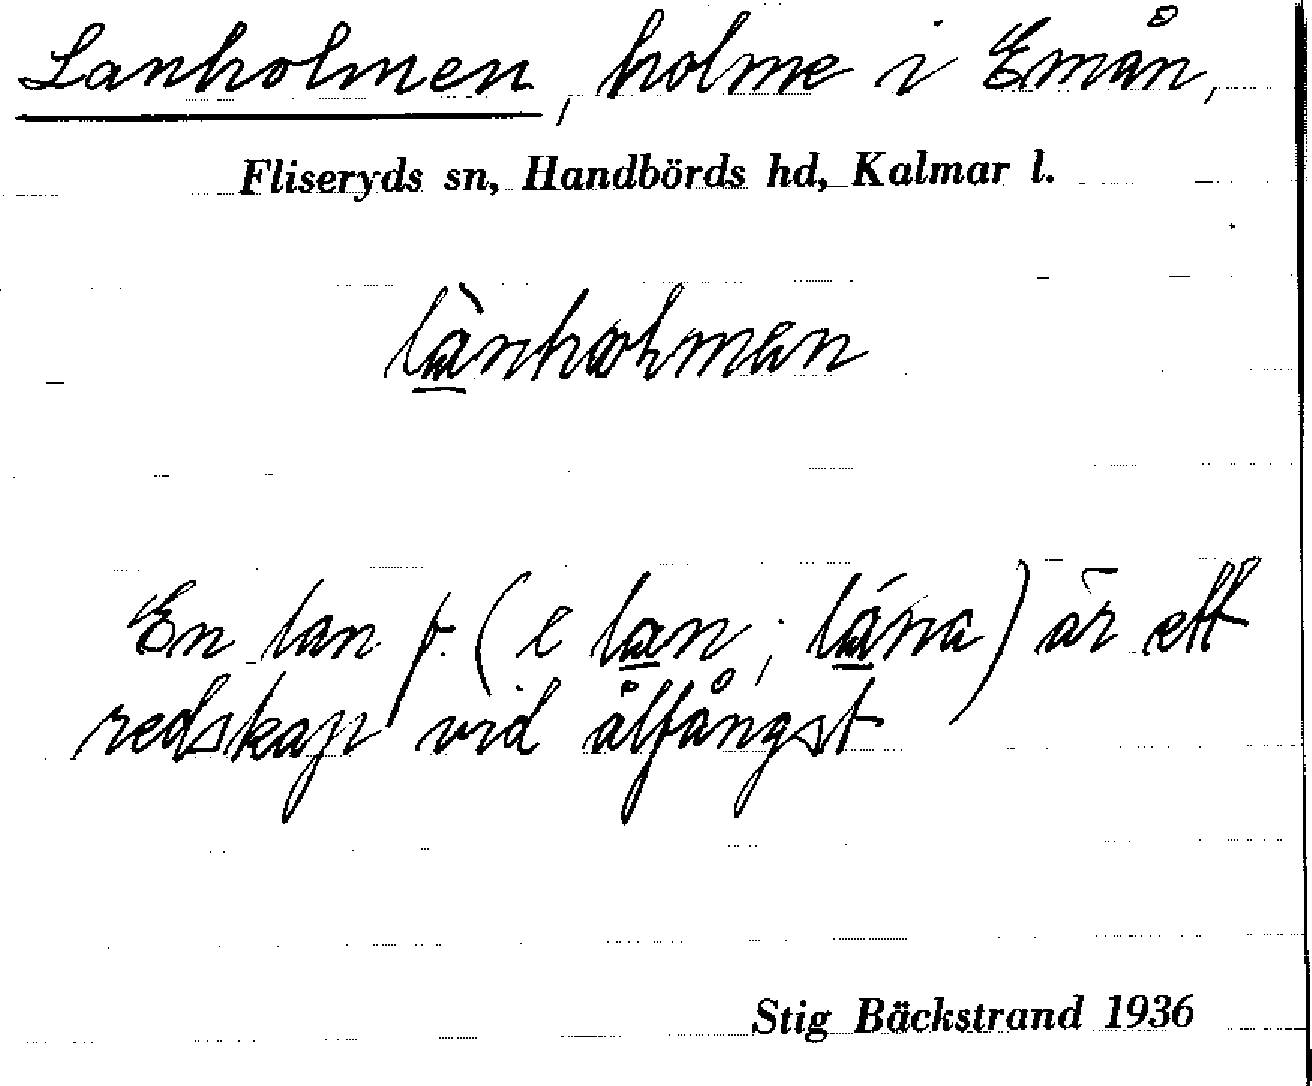 Lanholmen, holme i Emån,
Fliseryds sn, Handbörds hd, Kalmar l.
En lan f. (e lan; lána) är ett
redskap vid ålfångst
Stig Bäckstrand 1936